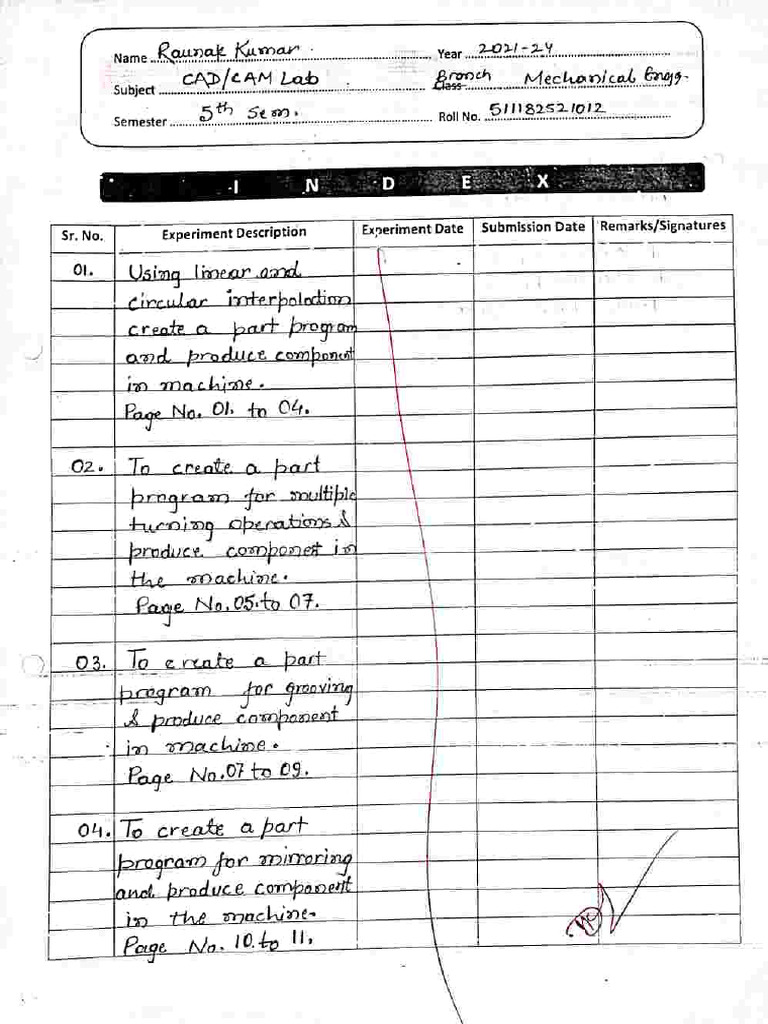 Name Raunak Kumar. Year 2021-24
Subject CAD/CAM Lab Branch Class Mechanical Engg.
Semester 5th Sem. Roll No. 511182521012
I N D E X
Sr. No. Experiment Description Experiment Date Submission Date Remarks/Signatures
01. Using linear and
circular interpolation
create a part program
and produce component
in machine.
Page No. 01. to 04.
02. To create a part
program for multiple
turning operations &
produce componet in
the machine.
Page No. 05. to 07.
03. To create a part
program for grooving
& produce component
in machine.
Page No. 07 to 09.
04. To create a part
program for mirroring
and produce component
in the machine.
Page No. 10. to 11.